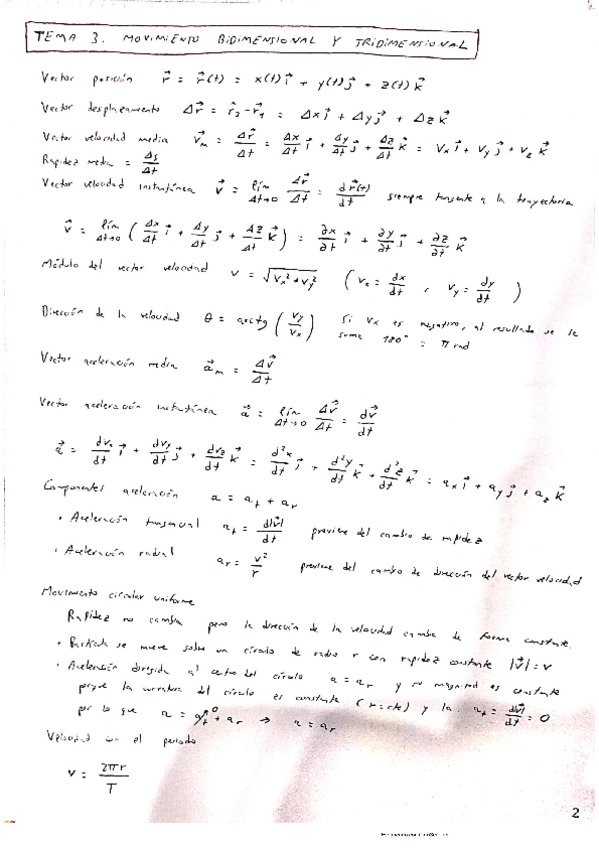 TEMA 3. MOVIMIENTO BIDIMENSIONAL Y TRIDIMENSIONAL
Vector posición r⃗ = r⃗(t) = x(t)i⃗ + y(t)j⃗ + z(t)k⃗
Vector desplazamiento Δr⃗ = r⃗₂ - r⃗₁ = Δx i⃗ + Δy j⃗ + Δz k⃗
Vector velocidad media v⃗ₘ = Δr⃗/Δt = Δx/Δt i⃗ + Δy/Δt j⃗ + Δz/Δt k⃗ = Vx i⃗ + Vy j⃗ + Vz k⃗
Rapidez media = Δs/Δt
Vector velocidad instantánea v⃗ = lím Δt→0 Δr⃗/Δt = dr⃗(t)/dt siempre tangente a la trayectoria
v⃗ = lím Δt→0 (Δx/Δt i⃗ + Δy/Δt j⃗ + Δz/Δt k⃗) = ∂x/∂t i⃗ + ∂y/∂t j⃗ + ∂z/∂t k⃗
Módulo del vector velocidad v = √(Vx² + Vy²) (Vx = dx/dt, Vy = dy/dt)
Dirección de la velocidad θ = arctg (Vy/Vx) Si Vx es negativo, al resultado se le
suma 180° = π rad
Vector aceleración media a⃗ₘ = Δv⃗/Δt
Vector aceleración instantánea a⃗ = lím Δt→0 Δv⃗/Δt = dv⃗/dt
a⃗ = dvx/dt i⃗ + dvy/dt j⃗ + dvz/dt k⃗ = d²x/dt i⃗ + d²y/dt j⃗ + d²z/dt k⃗ = ax i⃗ + ay j⃗ + az k⃗
Componentes aceleración a = at + ar
· Aceleración tangencial at = d|v⃗|/dt proviene del cambio de rapidez
· Aceleración radial ar = v²/r proviene del cambio de dirección del vector velocidad
Movimiento circular uniforme
Rapidez no cambia pero la dirección de la velocidad cambia de forma constante.
· Partícula se mueve sobre un círculo de radio r con rapidez constante |v⃗| = v
· Aceleración dirigida al centro del círculo a = ar y su magnitud es constante
porque la curvatura del círculo es constante (r = cte) y la at = d|v⃗|/dt = 0
por lo que a = at⁰ + ar → a = ar
Velocidad con el periodo
v = 2πr/T
2